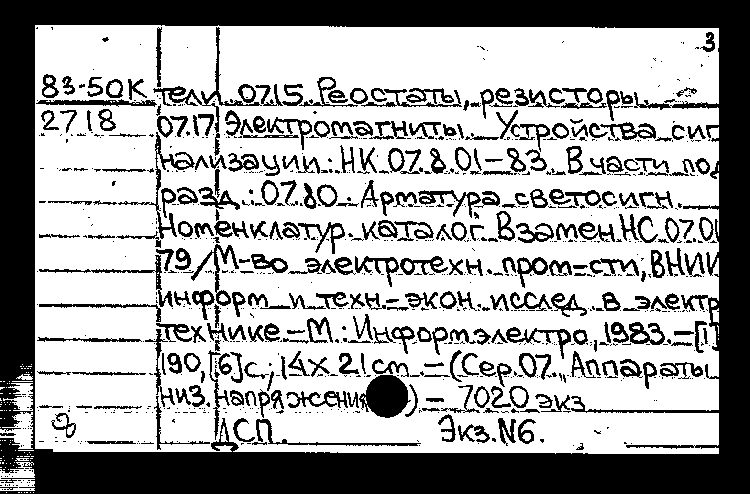 3
83-50К тели. 07.15. Реостаты, резисторы.
2718 07.17. Электромагниты. Устройства сиг
нализации: НК 07.8.01-83. В части под
разд.: 07.80. Арматура светосигн.
Номенклатур. каталог. Взамен НС.07.0
79/М-во электротехн. пром-сти, ВНИИ
информ и техн-экон. исслед. в электр
технике.-М.: Информэлектро, 1983.-[1]
190,[6]с.; 14х21cm.-(Сер.07. Аппараты
низ. напряжения)- 7020 экз
СП. Экз.N6.